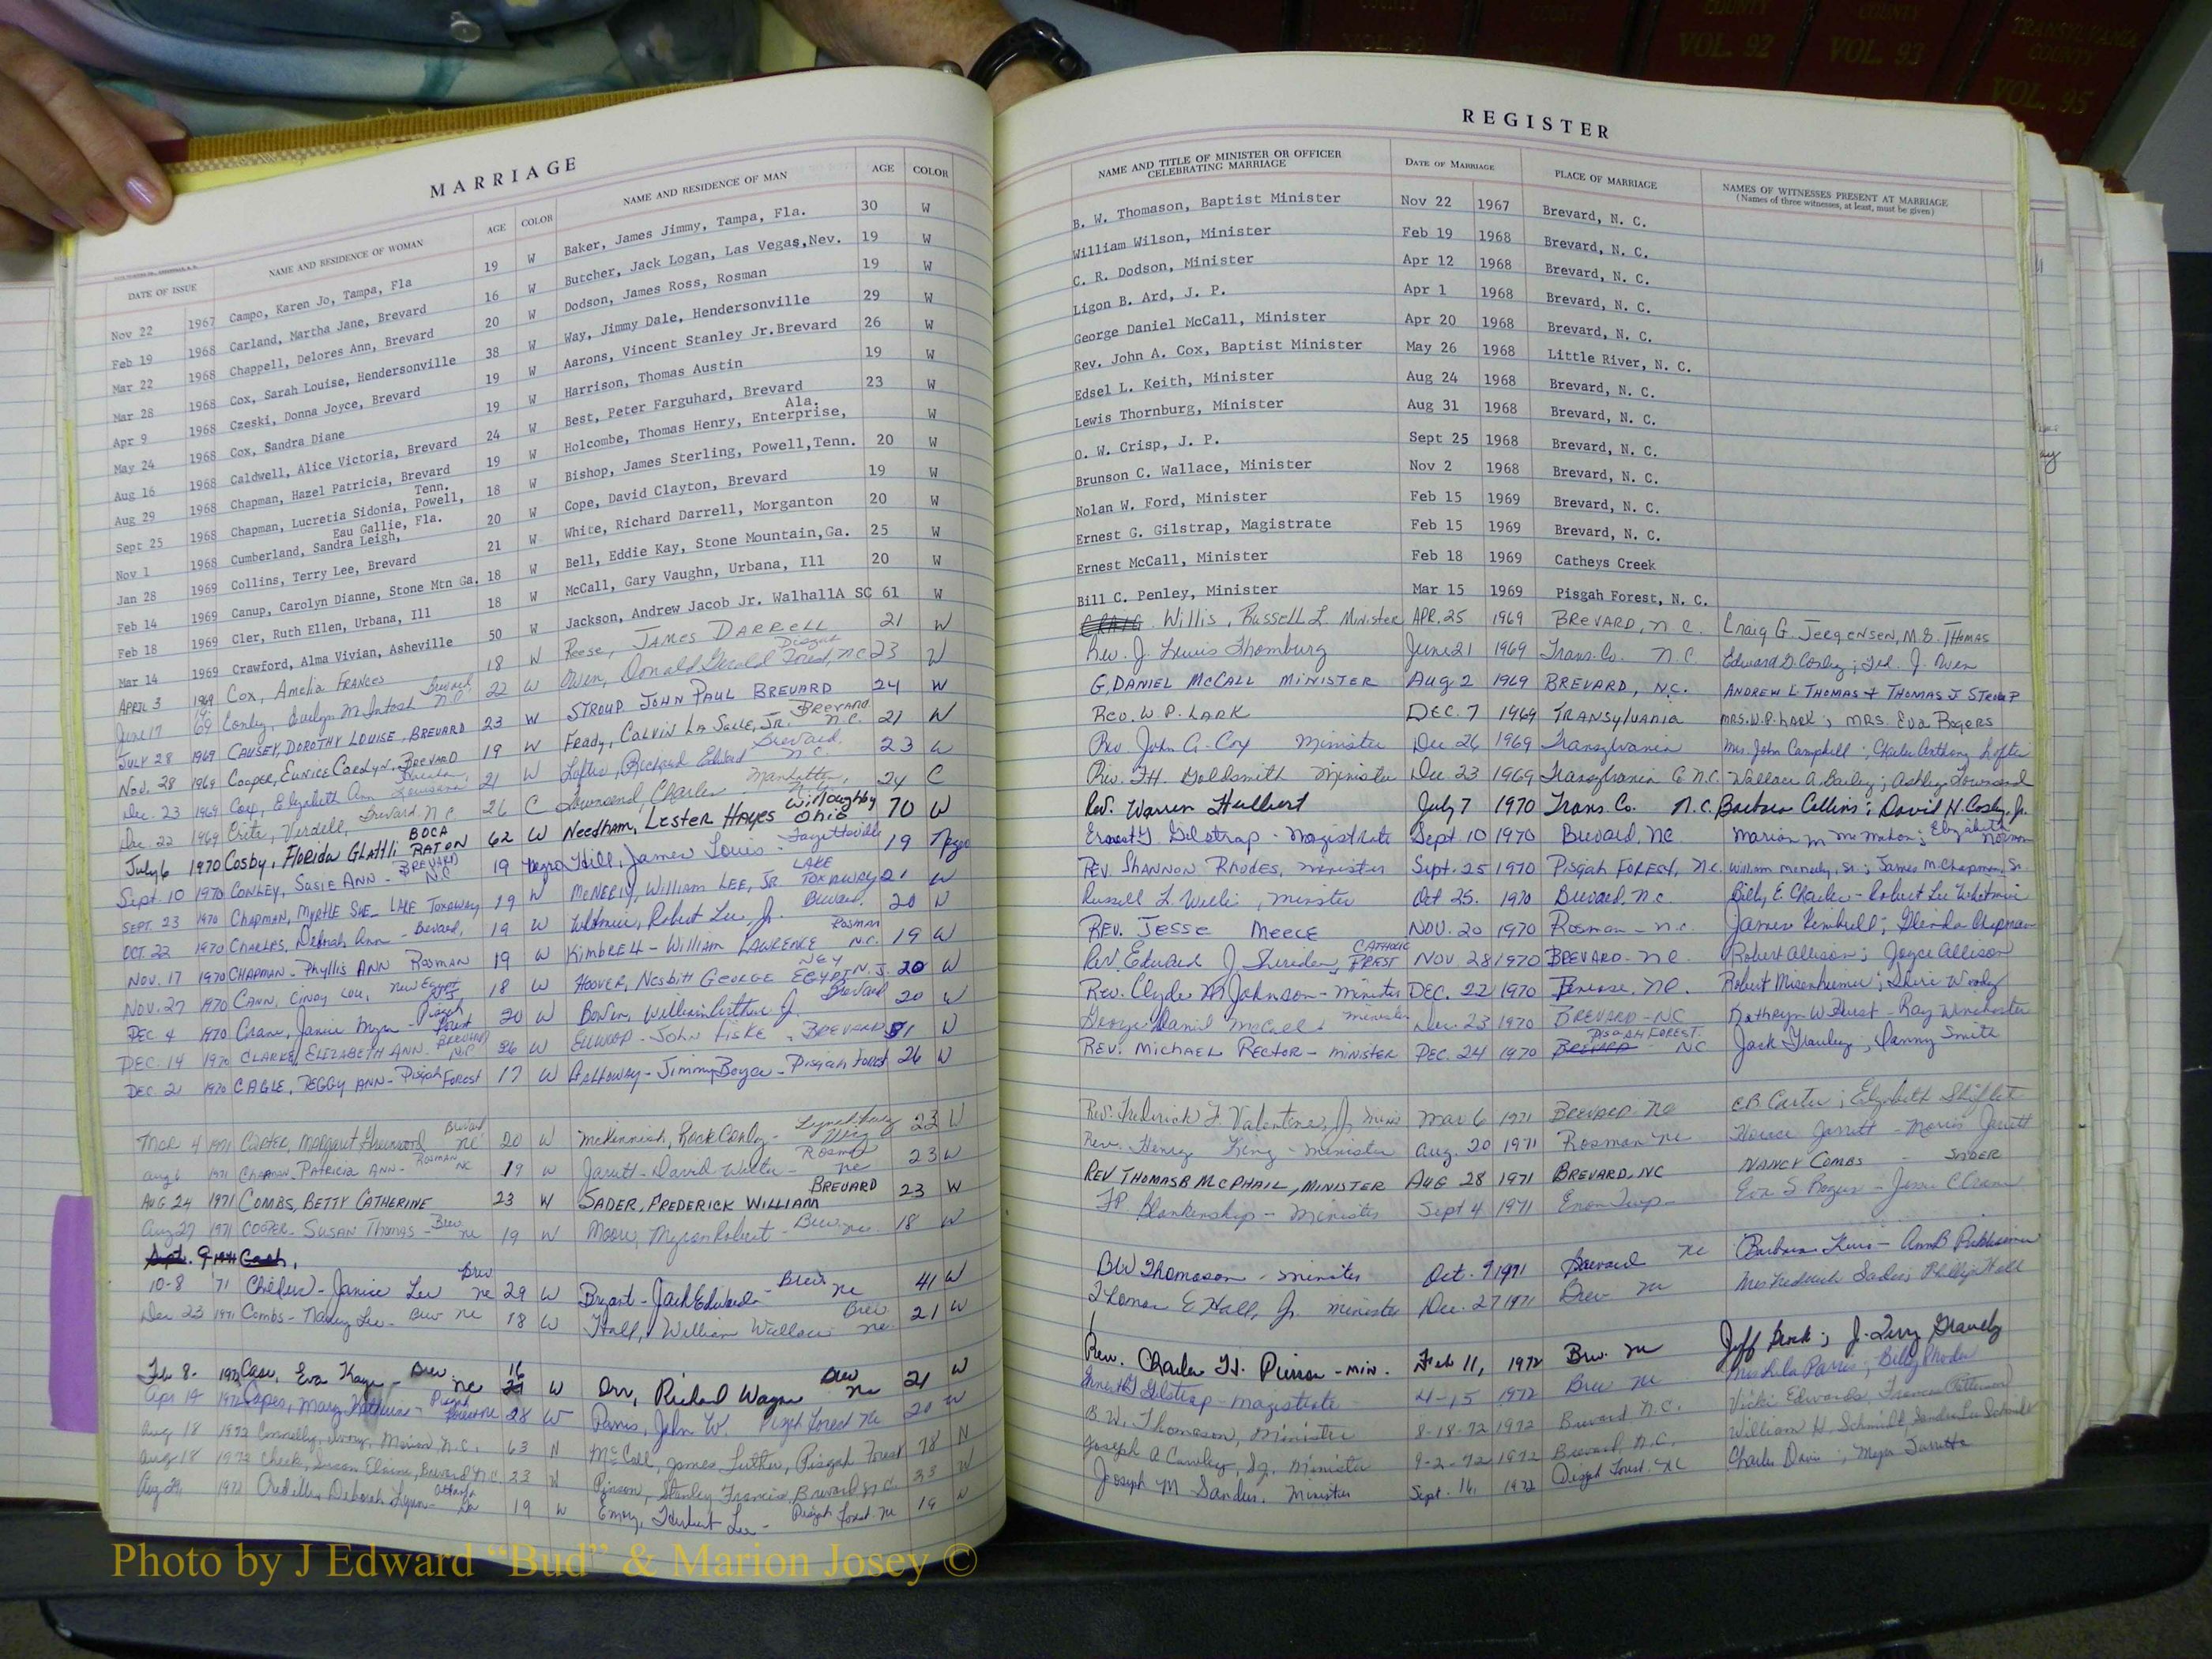 COUNTY
VOL. 92
COUNTY
VOL. 93
TRANSYLVANIA
COUNTY
VOL. 95
MARRIAGE
DATE OF ISSUE NAME AND RESIDENCE OF WOMAN AGE COLOR NAME AND RESIDENCE OF MAN AGE COLOR
Nov 22 1967 Campo, Karen Jo, Tampa, Fla 19 W Baker, James Jimmy, Tampa, Fla. 30 W
Feb 19 1968 Carland, Martha Jane, Brevard 16 W Butcher, Jack Logan, Las Vegas,Nev. 19 W
Mar 22 1968 Chappell, Delores Ann, Brevard 20 W Dodson, James Ross, Rosman 19 W
Mar 28 1968 Cox, Sarah Louise, Hendersonville 38 W Way, Jimmy Dale, Hendersonville 29 W
Apr 9 1968 Czeski, Donna Joyce, Brevard 19 W Aarons, Vincent Stanley Jr.Brevard 26 W
May 24 1968 Cox, Sandra Diane 19 W Harrison, Thomas Austin 19 W
Aug 16 1968 Caldwell, Alice Victoria, Brevard 24 W Best, Peter Farguhard, Brevard 23 W
Aug 29 1968 Chapman, Hazel Patricia, Brevard 19 W Holcombe, Thomas Henry, Enterprise, Ala. W
Sept 25 1968 Chapman, Lucretia Sidonia, Powell, Tenn. 18 W Bishop, James Sterling, Powell,Tenn. 20 W
Nov 1 1968 Cumberland, Sandra Leigh, Eau Gallie, Fla. 20 W Cope, David Clayton, Brevard 19 W
Jan 28 1969 Collins, Terry Lee, Brevard 21 W White, Richard Darrell, Morganton 20 W
Feb 14 1969 Canup, Carolyn Dianne, Stone Mtn Ga. 18 W Bell, Eddie Kay, Stone Mountain,Ga. 25 W
Feb 18 1969 Cler, Ruth Ellen, Urbana, Ill 18 W McCall, Gary Vaughn, Urbana, Ill 20 W
Mar 14 1969 Crawford, Alma Vivian, Asheville 50 W Jackson, Andrew Jacob Jr. WalhallA SC 61 W
APRIL 3 1969 Cox, Amelia FRANCES 18 W Reese, JAMES DARRELL 21 W
June 17 1969 Conley, Evelyn McIntosh Brevard N.C. 22 W Owen, Donald Gerald Pisgah Forest, NC 23 W
JULY 28 1969 CAUSEY, DOROTHY LOUISE, BREVARD 23 W STROUP JOHN PAUL BREVARD 24 W
Nov. 28 1969 Cooper, Eunice Carolyn, BREVARD 19 W Frady, Calvin La Salle, Jr. BREVARD N.C. 21 W
Dec. 23 1969 Cox, Elizabeth Ann Louisiana 21 W Loftis, Richard Edward Brevard N.C. 23 W
Dec. 22 1969 Crite, Verdell, Brevard N.C. 26 C Townsend Charles Manhattan, N.Y. 24 C
July 6 1970 Cosby, FLORIDA GLATLI BOCA RATON 62 W Needham, Lester Hayes Willoughby Ohio 70 W
Sept. 10 1970 CONLEY, SUSIE ANN - BREVARD NC 19 Negro Hill, James Louis - Fayetteville 19 Negro
SEPT. 23 1970 CHAPMAN, MYRTLE SUE - LAKE TOXAWAY 19 W McNEELY, WILLIAM LEE, JR LAKE TOXAWAY 21 W
OCT. 22 1970 CHARLES, Deborah Ann - Brevard, 19 W Whitmire, Robert Lee, Jr. Brevard. 20 W
NOV. 17 1970 CHAPMAN - Phyllis ANN ROSMAN 19 W KIMBRELL - WILLIAM LAWRENCE ROSMAN N.C. 19 W
NOV. 27 1970 CANN, CINDY LOU, New Egypt NJ 18 W HOOVER, NESBITT GEORGE NEW EGYPT N.J. 20 W
DEC 4 1970 Crane, Janice Myra - Pisgah Forest 20 W Bowen, William Arthur Jr. Brevard 20 W
DEC. 14 1970 CLARKE, ELIZABETH ANN - BREVARD NC 86 W ELLWOOD - JOHN FISKE - BREVARD 81 W
DEC. 21 1970 CAGLE, PEGGY ANN - Pisgah Forest 17 W GALLOWAY - Jimmy Boyce - Pisgah Forest 26 W
Mar 4 1971 CARTER, Margaret Brevard NC 20 W McKinnish, Rock Conley - Lynchburg 23 W
Aug 6 1971 CHAPMAN, PATRICIA ANN - ROSMAN NC 19 W Jarrett - David Walter - Rosman NC 23 W
AUG 24 1971 COMBS, BETTY CATHERINE 23 W SADER, FREDERICK WILLIAM BREVARD 23 W
Aug 27 1971 COOPER - SUSAN Thomas - Brev NC 19 W Moore, Myron Robert - Brev. NC. 18 W
Sept. 9 1971 Cash,
10-8 '71 Childers - Janice Lee Brev NC 29 W Bryant - Jack Edward - Brev NC 41 W
Dec 23 1971 Combs - Nancy Lee - Brev NC 18 W Hall, William Wallace Brev. NC. 21 W
Feb 8- 1972 Case, Eva Kaye - Brev. NC 16 W Orr, Richard Wayne Brev NC 21 W
Apr 14 1972 Capes, Mary Kathleen - Pisgah Forest NC 28 W Parris, John W. Pisgah Forest NC 20 W
Aug 18 1972 Connelly, Ivory, Marion N.C. 63 N McCall, James Luther, Pisgah Forest 78 N
Aug 18 1972 Cheek, Susan Elaine, Brevard N.C. 23 W Pinson, Stanley Francis, Brevard N.C. 33 W
Aug 29, 1972 Credille, Deborah Lynn - Ga 19 W Emory, Herbert Lee - Pisgah Forest NC 19 W
REGISTER
NAME AND TITLE OF MINISTER OR OFFICER CELEBRATING MARRIAGE DATE OF MARRIAGE PLACE OF MARRIAGE NAMES OF WITNESSES PRESENT AT MARRIAGE
(Names of three witnesses, at least, must be given)
B. W. Thomason, Baptist Minister Nov 22 1967 Brevard, N. C.
William Wilson, Minister Feb 19 1968 Brevard, N. C.
C. R. Dodson, Minister Apr 12 1968 Brevard, N. C.
Ligon B. Ard, J. P. Apr 1 1968 Brevard, N. C.
George Daniel McCall, Minister Apr 20 1968 Brevard, N. C.
Rev. John A. Cox, Baptist Minister May 26 1968 Little River, N. C.
Edsel L. Keith, Minister Aug 24 1968 Brevard, N. C.
Lewis Thornburg, Minister Aug 31 1968 Brevard, N. C.
O. W. Crisp, J. P. Sept 25 1968 Brevard, N. C.
Brunson C. Wallace, Minister Nov 2 1968 Brevard, N. C.
Nolan W. Ford, Minister Feb 15 1969 Brevard, N. C.
Ernest G. Gilstrap, Magistrate Feb 15 1969 Brevard, N. C.
Ernest McCall, Minister Feb 18 1969 Catheys Creek
Bill C. Penley, Minister Mar 15 1969 Pisgah Forest, N. C.
CRAIG Willis, Russell L. Minister APR. 25 1969 BREVARD, N C. Craig G. Jergensen, M.S. Thomas
Rev. J. Lewis Thornburg June 21 1969 Trans. Co. N.C. Edward D. Conley; Ted. J. Owen
G. DANIEL McCALL MINISTER AUG 2 1969 BREVARD, N.C. ANDREW L. THOMAS + THOMAS J STROUP
Rev. W. P. LARK DEC. 7 1969 TRANSylvania MRS. W.P. LARK; MRS. Eva Rogers
Rev. John A. Cox Minister Dec 26 1969 Transylvania Mrs. John Campbell; Charles Anthony Loftis
Rev. F.H. Goldsmith Minister Dec. 23 1969 Transylvania Co N.C. Wallace A. Bailey; Ashley Townsend
Rev. Warren Hulbert July 7 1970 Trans. Co. N.C. Barbara Collins; David N. Cosby, Jr.
Ernest G. Gilstrap - Magistrate Sept. 10 1970 Brevard, NC Marion M McMahon; Elizabeth Norman
REV SHANNON RHODES, minister Sept. 25 1970 Pisgah FOREST, N.C. William McNeely, Sr.; James M. Chapman, Sr.
Russell L. Willis, minister Oct 25. 1970 Brevard, N.C. Billy E. Charles - Robert Lee Whitmire
REV. JESSE MEECE NOV. 20 1970 Rosman - N.C. James Kimbrell; Glenda Chapman
Rev. Edward J. Sheridan, CATHOLIC PRIEST NOV. 28 1970 BREVARD - N C Robert Allison; Joyce Allison
Rev. Clyde M Johnson - Minister DEC. 22 1970 Penrose, NC. Robert Misenheimer; Sherie Woody
George Daniel McCall, minister Dec. 23 1970 BREVARD - NC Kathryn W Hurst - Ray Winchester
REV. MICHAEL RECTOR - MINISTER DEC. 24 1970 BREVARD PISGAH FOREST - NC Jack ; Danny Smith
Rev. Frederick F. Valentine, Jr. Mar 6 1971 BREVARD NC C.B. Carter; Elizabeth Shiflet
Rev. Henry King - minister Aug. 20 1971 Rosman NC Jarrett - Jarrett
REV THOMAS B McPHAIL, MINISTER AUG 28 1971 BREVARD, NC NANCY COMBS - SADER
F P Blankenship - Minister Sept 4 1971 Enon Eva S Rogers - Jesse C Crane
BW Thomason - minister Oct. 9 1971 Brevard NC Barbara - Ann B
Thomas E Hall, Jr. minister Dec. 27 1971 Brev NC Mrs Frederick Sader; Phillip Hall
Rev. Charles H. Pierson - min. Feb 11, 1972 Brev. NC Jeff ; J. Terry Gravely
Ernest G Gilstrap - Magistrate 4-15 1972 Brev NC Mrs Lula Parris; Billy Rhodes
B.W. Thomason, Minister 8-18-72 1972 Brevard N.C. Vicki Edwards, Frances Patterson
Joseph A Cawley, Sr. Minister 9-2-72 1972 Brevard, N.C. William H. Schmidt, Sandra Lee Schmidt
Joseph M Sanders. Minister Sept. 16, 1972 Pisgah Forest, NC Charles Davis;
Photo by J Edward “Bud” & Marion Josey ©